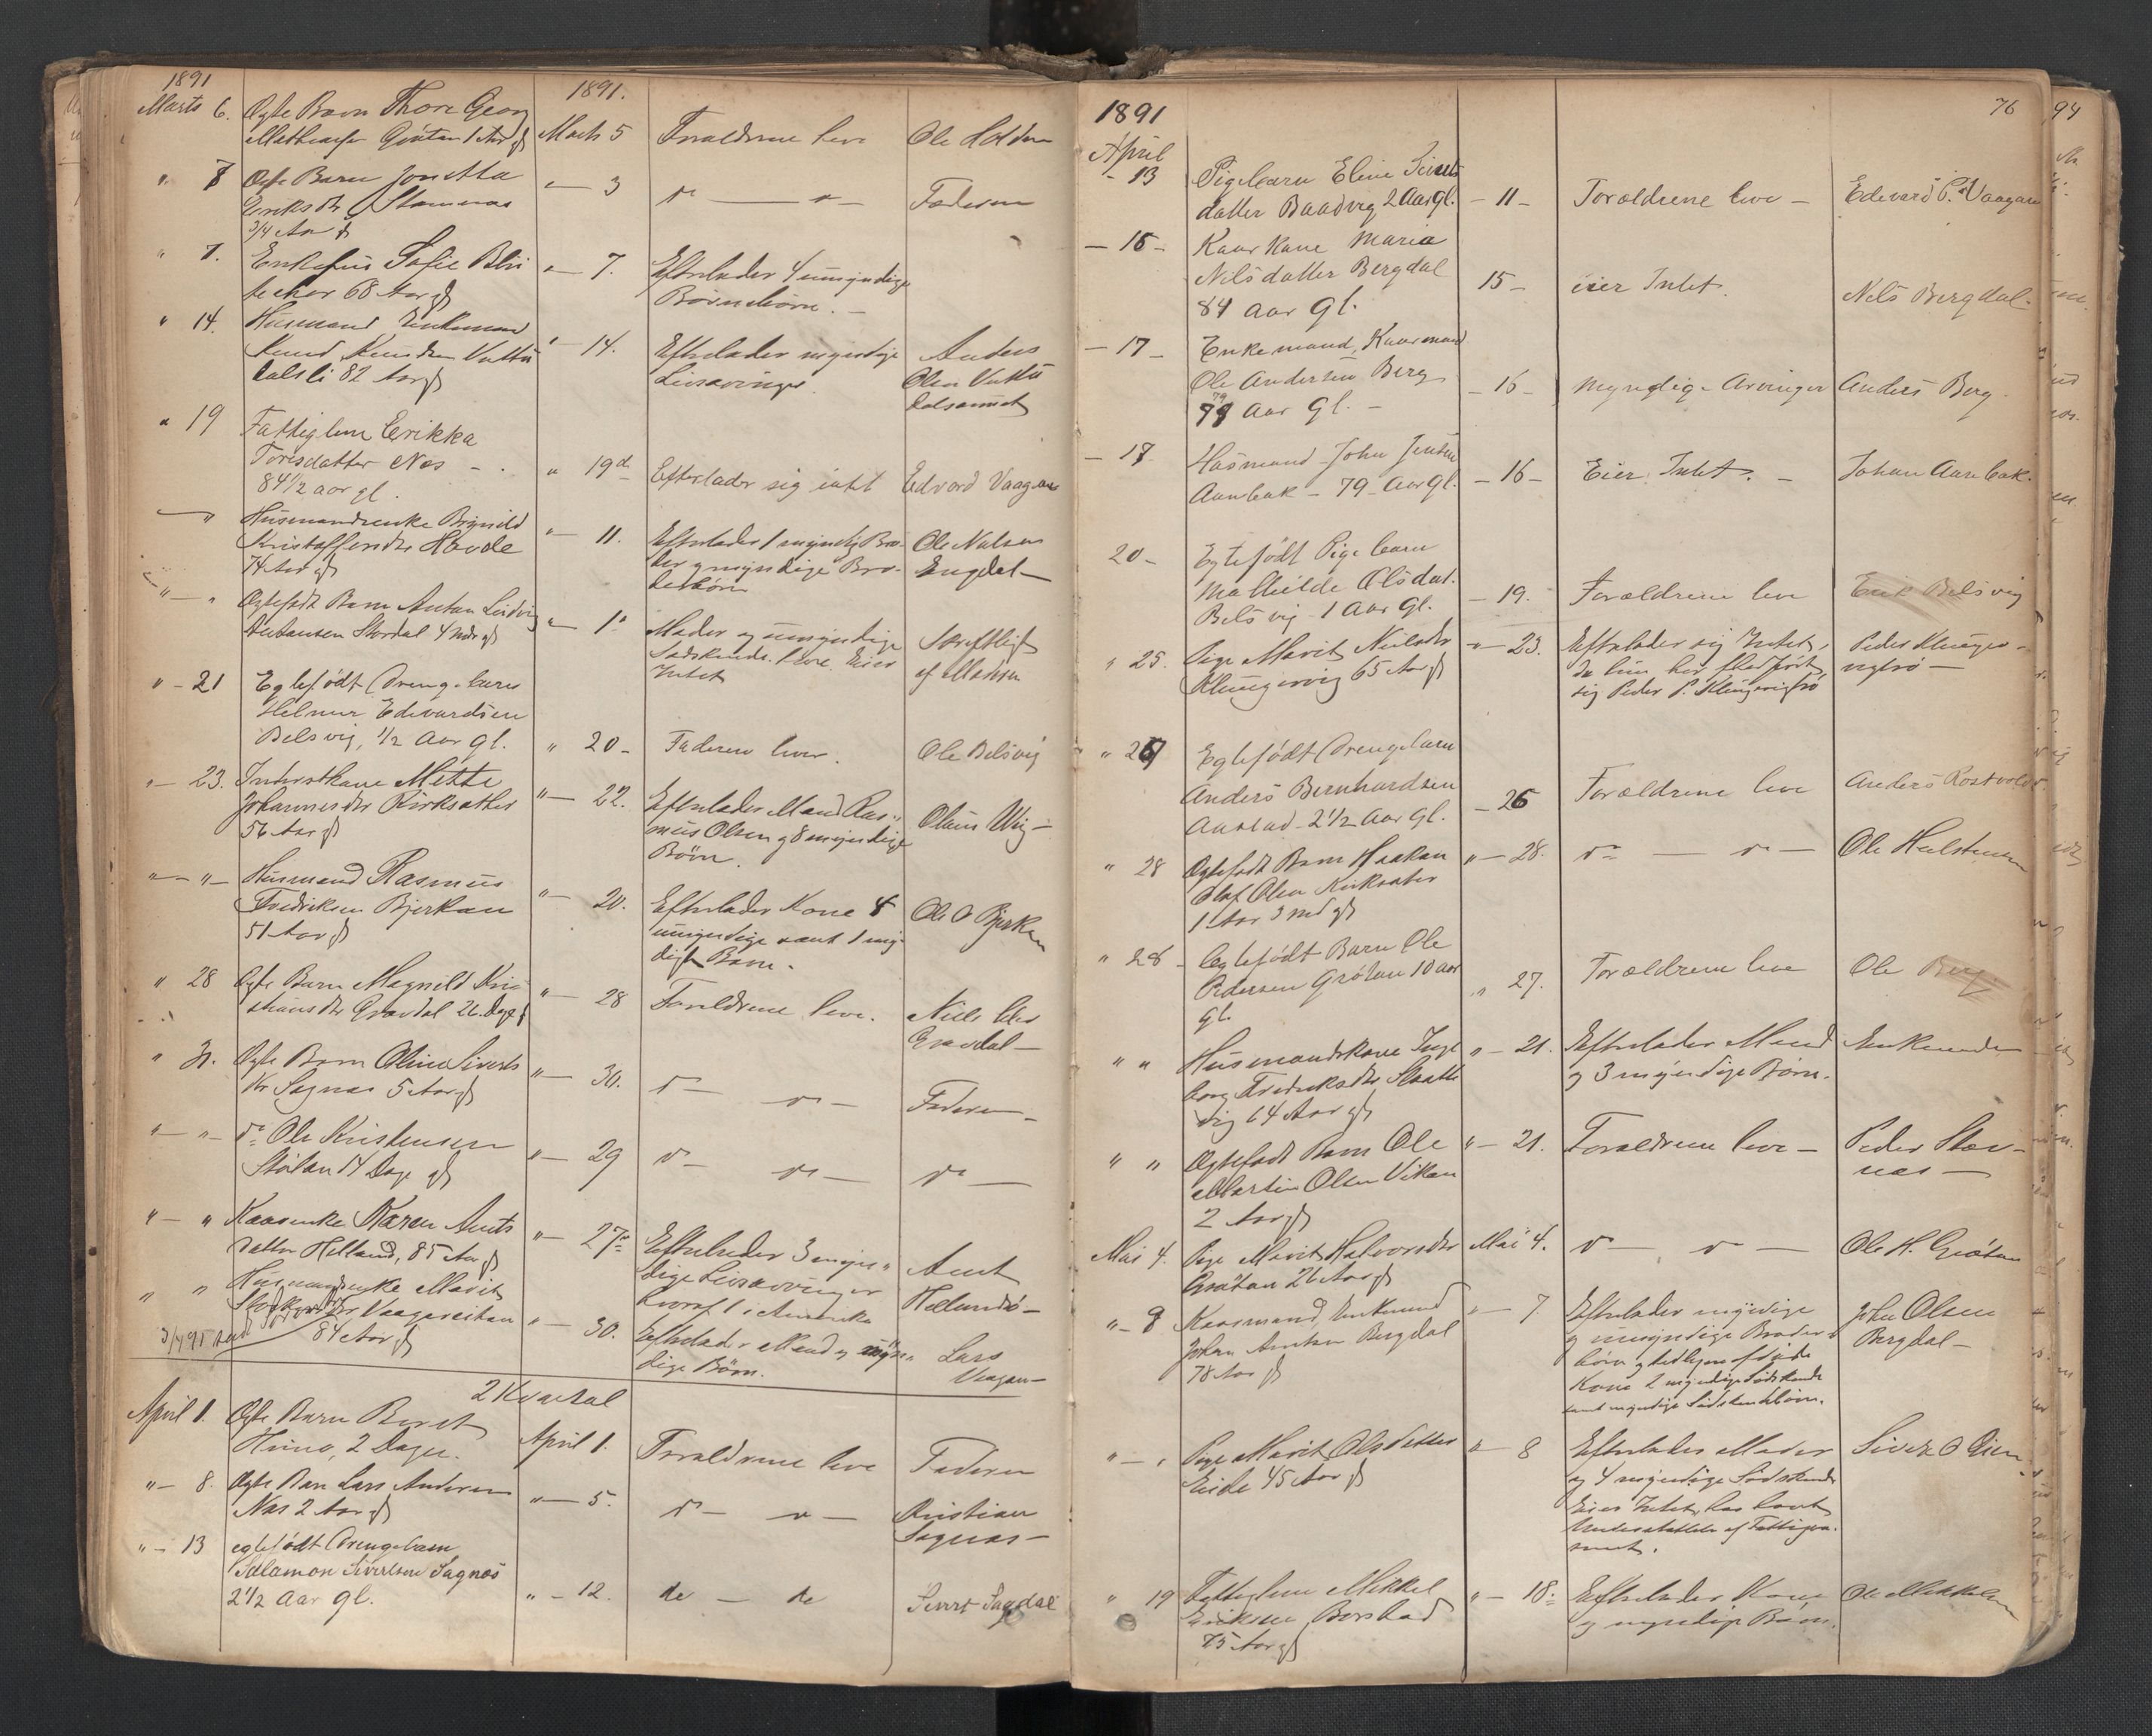 1891
1891.
Marts 6.
Ægte Barn Thore Georg
Gröten 1 Aar gl
Marts 5
Forældrene leve
Ole Holden
" 7
Ægte Barn Jonetta
Eriksdtr Stamnæs
3/4 Aar gl
" — 3
do — do —
Faderen
" 7.
Sofie
68 Aar gl
" — 7.
Efterlader 4 umyndige
Börnebörn. —
" 14.
Husmand Enkemand
Knud Knudsen
82 Aar gl
" — 14.
Efterlader myndige
Livsarvinger
Anders
Olsen
" 19
Fattiglem Erikka
Toresdatter Næs —
84 1/2 aar gl.
" 19de
Efterlader sig intet
Edvard Vaagan
— "
Husmandsenke Brynild
Kristoffersdtr Hovde
74 Aar gl
" — 11.
Efterlader 1 myndig Bro-
der og myndige Bro-
derbörn
Ole Nelsen
Engdal —
" — "
Ægtefödt Barn Anton Ludvig
Antonsen Stordal 4 Mdr gl
" — 1ste
Moder og umyndige
Södskende leve Eier
Intet
Skriftligt
af Moderen
" — 21
Egtefödt Drengebarn
Helmer Edevardsen
Belsvig, 1/2 Aar gl.
" 20 —
Faderen lever.
Ole Belsvig
" — 23.
Inderstkone Mette
Johannesdtr Kirksæther
56 Aar gl
" — 22.
Efterlader Mand Ras-
mus Olsen og 8 myndige
Börn.
Olaus Wig —
" — " —
Husmand Rasmus
Fredriksen Bjerkan
51 Aar gl
" — 20.
Efterlader Kone 4
umyndige samt 1 myn-
digt Barn.
Ole O Bjerkan
" 28
Ægte Barn Magnild Kri-
stiansdtr Gravdal 26 Dage gl
" — 28
Forældrene leve.
Niels
Gravdal —
" 31.
Ægte Barn Olina Siverts-
dtr Sagnæs 5 Aar gl
" — 30.
do — do —
Faderen —
" — " —
do Ole Kristensen
Stölan 14 Dage gl
" — 29
do — do —
do —
" — "
Kaarenke Karen Arnts-
datter Helland, 85 Aar gl
" — 27de
Efterlader 3 myn-
dige Livsarvinger
hvoraf 1 i Amerika
Arnt
Hellandsö —
" "
Husmandsenke Marit
Vaagereitan
84 Aar gl
" — 30.
Efterlader Mand og myn-
dige Börn.
Lars
Vaagan —
2 Kvartal
April 1.
Ægte Barn Beret
Hemo, 2 Dage.
April 1.
Forældrene leve
Faderen
" — 8.
Ægte Barn Lars Andersen
Næs 2 Aar gl
" — 5.
do — do —
Kristian
Sagnæs —
" — 13
egtefödt Drengebarn
Salamon Sivertsen Sagnæs
2 1/2 Aar gl.
" — 12.
do — do
Sivert Sagdal
1891
76
April
- 13
Pigebarn Eline Siverts
datter Baadvig 2 Aar gl.
— 11 —
Forældrene leve —
Edevard P. Vaagan
— 15 —
Kaarkone Maria
Nilsdatter Bergdal
84 Aar gl.
15 —
eier Intet.
Nels Bergdal.
— 17 —
Enkemand, Kaarmand
Ole Andersen Berg
79 Aar gl. —
— 16 —
myndige Arvinger
Anders Berg.
— 17
Husmand John Jensen
Aunbak — 79 — Aar gl.
— 16 —
Eier Intet. —
Johan Aunbak.
20 —
Egtefödt Pigebarn
Mathilde Olsdat.
Belsvig — 1 Aar gl.
— 19.
Forældrene leve
Erik Belsvig
" 25.
Pige Marit Nielsdtr
Klungervig 65 Aar gl
" — 23.
Efterlader sig Intet,
da hun har
sig Peder P. Klungervigsö
Peder Klunger-
vigsö —
" 27
Egtefödt Drengebarn
Anders Bernhardsen
Aastad — 2 1/2 Aar gl.
— 26
Forældrene leve
Anders Rostvold
" 28
Ægtefödt Barn Haakon
Olaf Olsen Kirksæter
1 Aar 3 Md gl
" — 28.
do — do —
Ole Halstensen
" 28 —
Egtefödt Barn Ole
Pedersen Grötan 10 aar
gl.
" 27.
Forældrene leve
Ole Berg
" "
Husmandskone Inge
borg Fredriksdtr Slætte
vig 64 Aar gl
" — 21.
Efterlader Mand
og 3 myndige Börn.
Enkemanden
" "
Ægtefödt Barn Ole
Martin Olsen Vikan
2 Aar gl
" — 21.
Forældrene leve —
Peder Stav-
næs —
Mai 4.
Pige Marit Halvorsdtr
Grötan 26 Aar gl
Mai 4.
do — do —
Ole H. Grötan
" — 8
Kaarmand, Enkemand
Johan Arntsen Bergdal
78 Aar gl
" — 7
Efterlader myndige
og umyndige Broder-
börn og tidligere afdöde
Kone 2 myndige Södskende
samt myndige Södskendebörn.
John Olsen
Bergdal —
" — "
Pige Marit Olsdatter
Eide 45 Aar gl
" — 8
Efterlader Moder
og 4 myndige Södskende
Eier Intet, har havt
Understöttelse af Fattigvæ-
senet.
Sivert O Eien
" 19
Fattiglem Mikkel
Eriksen Borstad
75 Aar gl
" — 18de
Efterlader Kone
og myndige Börn.
Ole Mikkelsen
94